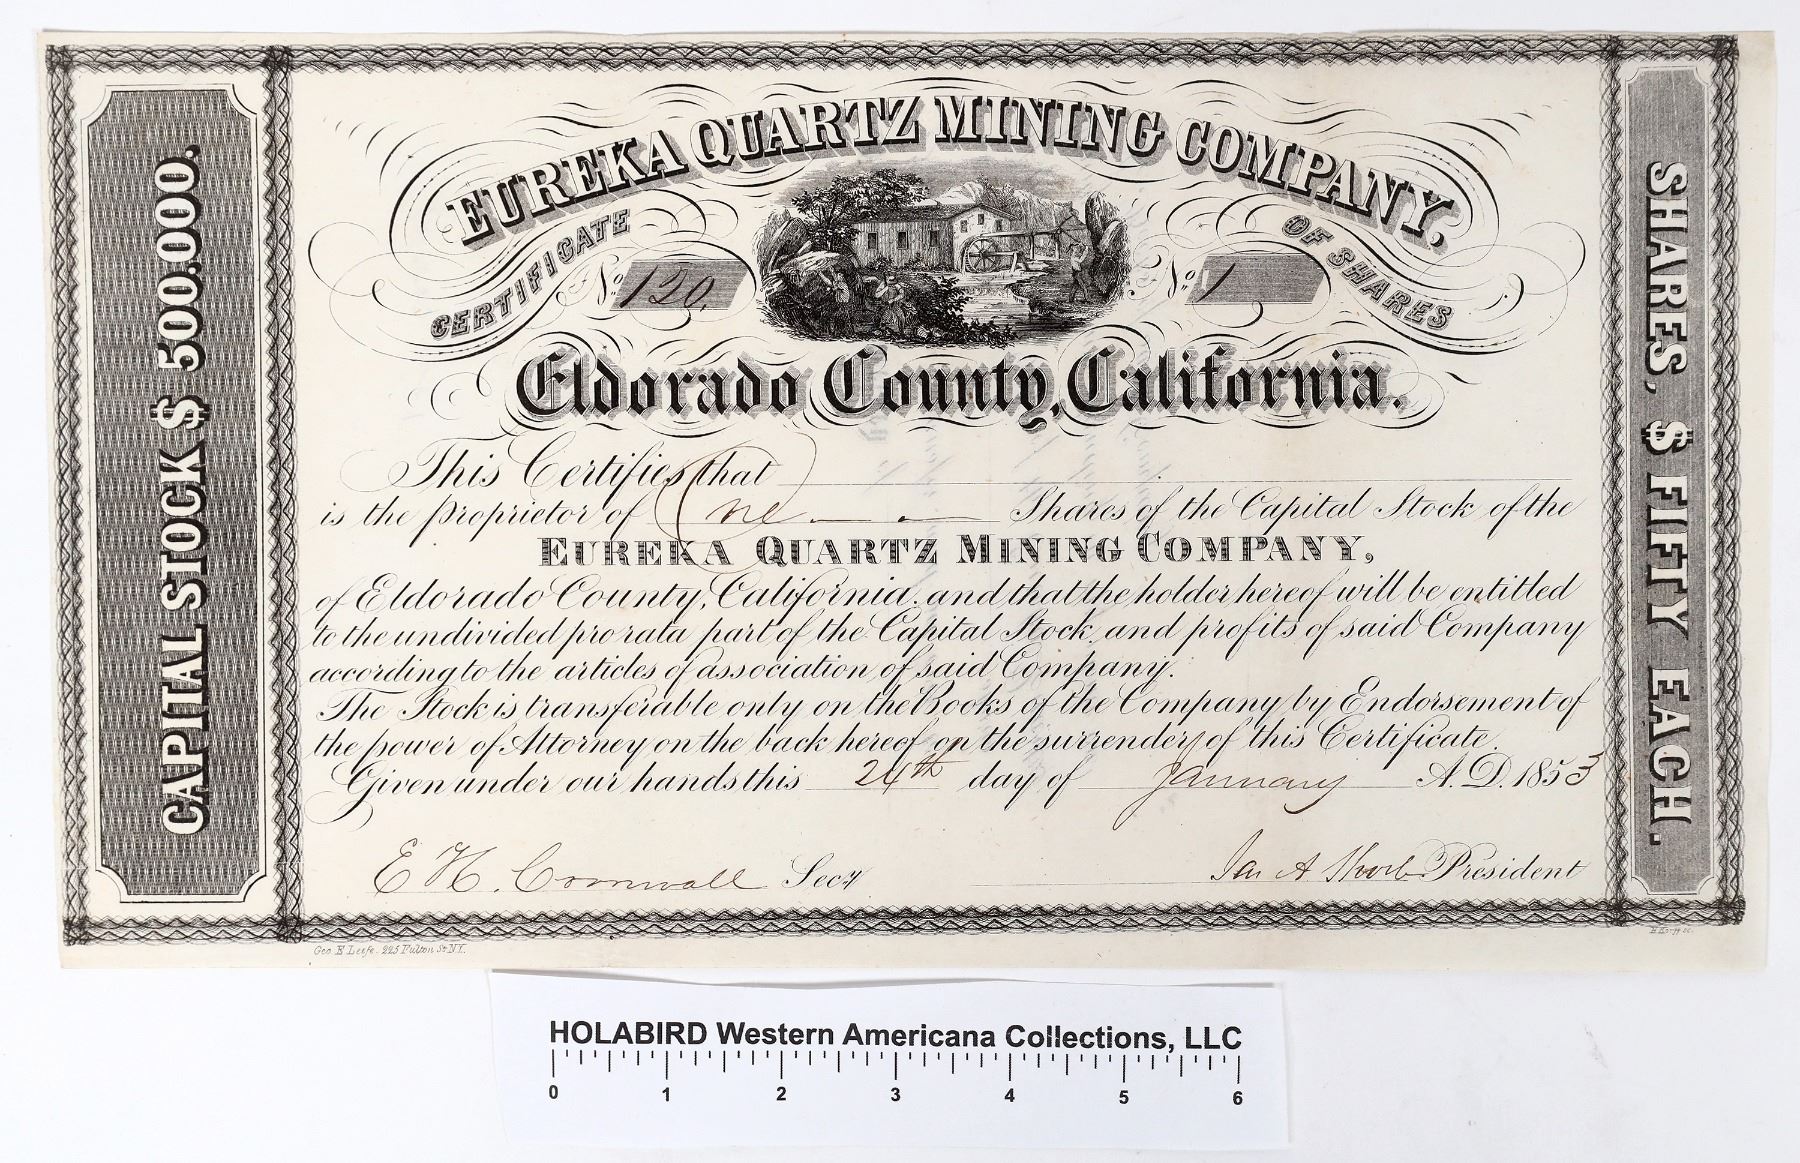 EUREKA QUARTZ MINING COMPANY,
CERTIFICATE OF SHARES
No. 120. No. 1
Eldorado County, California.
This Certifies that
is the Proprietor of One Shares of the Capital Stock of the
EUREKA QUARTZ MINING COMPANY,
of Eldorado County, California, and that the holder hereof will be entitled
to the undivided pro rata part of the Capital Stock, and profits of said Company
according to the articles of association of said Company.
The Stock is transferable only on the Books of the Company by Endorsement of
the power of Attorney on the back hereof on the surrender of this Certificate.
Given under our hands this 24th day of January A.D. 1853
E H. Cornwall Secy
Jas A President
CAPITAL STOCK $ 500.000.
SHARES, $ FIFTY EACH.
Geo. E Leefe. 225 Fulton St. N.Y.
HOLABIRD Western Americana Collections, LLC
0 1 2 3 4 5 6